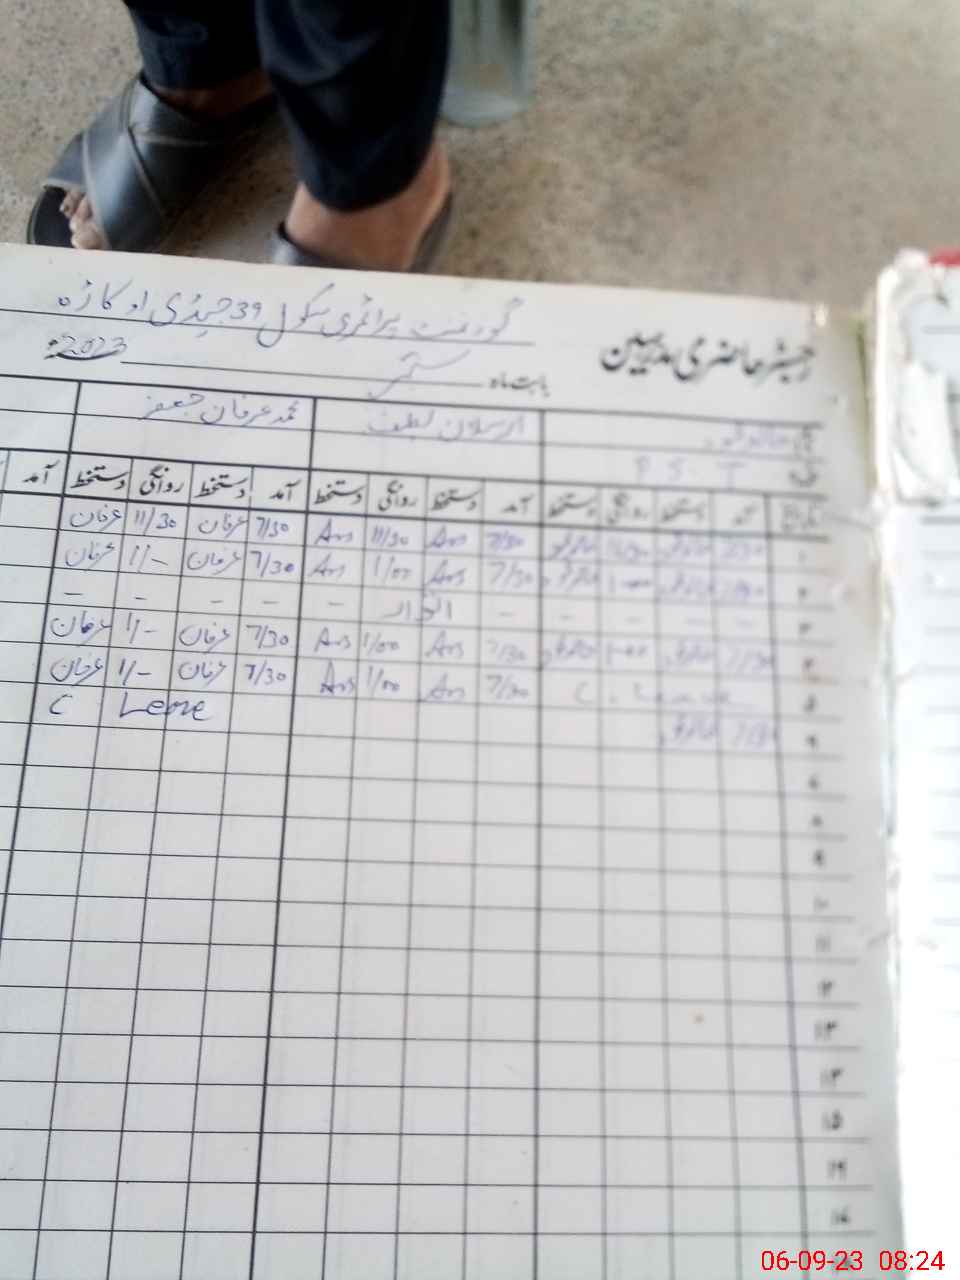 گورنمنٹ پرائمری سکول 39 جیڈی اوکاڑہ
رجسٹر حاضری مدرسین
بابت ماہ ستمبر 2023ء
نام ارسلان لطیف محمد عرفان جعفر
P.S.T
آمد دستخط روانگی دستخط آمد دستخط روانگی دستخط آمد دستخط روانگی دستخط آمد
۱ 7/30 Ars 11/30 Ars 7/30 عرفان 11/30 عرفان
۲ 7/30 Ars 1/00 Ars 7/30 عرفان 1/- عرفان
۳ - - - اتوار - - - - -
۴ 7/30 7/30 Ars 1/00 Ars 7/30 عرفان 1/- عرفان
۵ C. Leave 7/30 Ars 1/00 Ars 7/30 عرفان 1/- عرفان
۶ 7/30 C Leave
۷
۸
۹
۱۰
۱۱
۱۲
۱۳
۱۴
۱۵
۱۶
۱۷
06-09-23 08:24